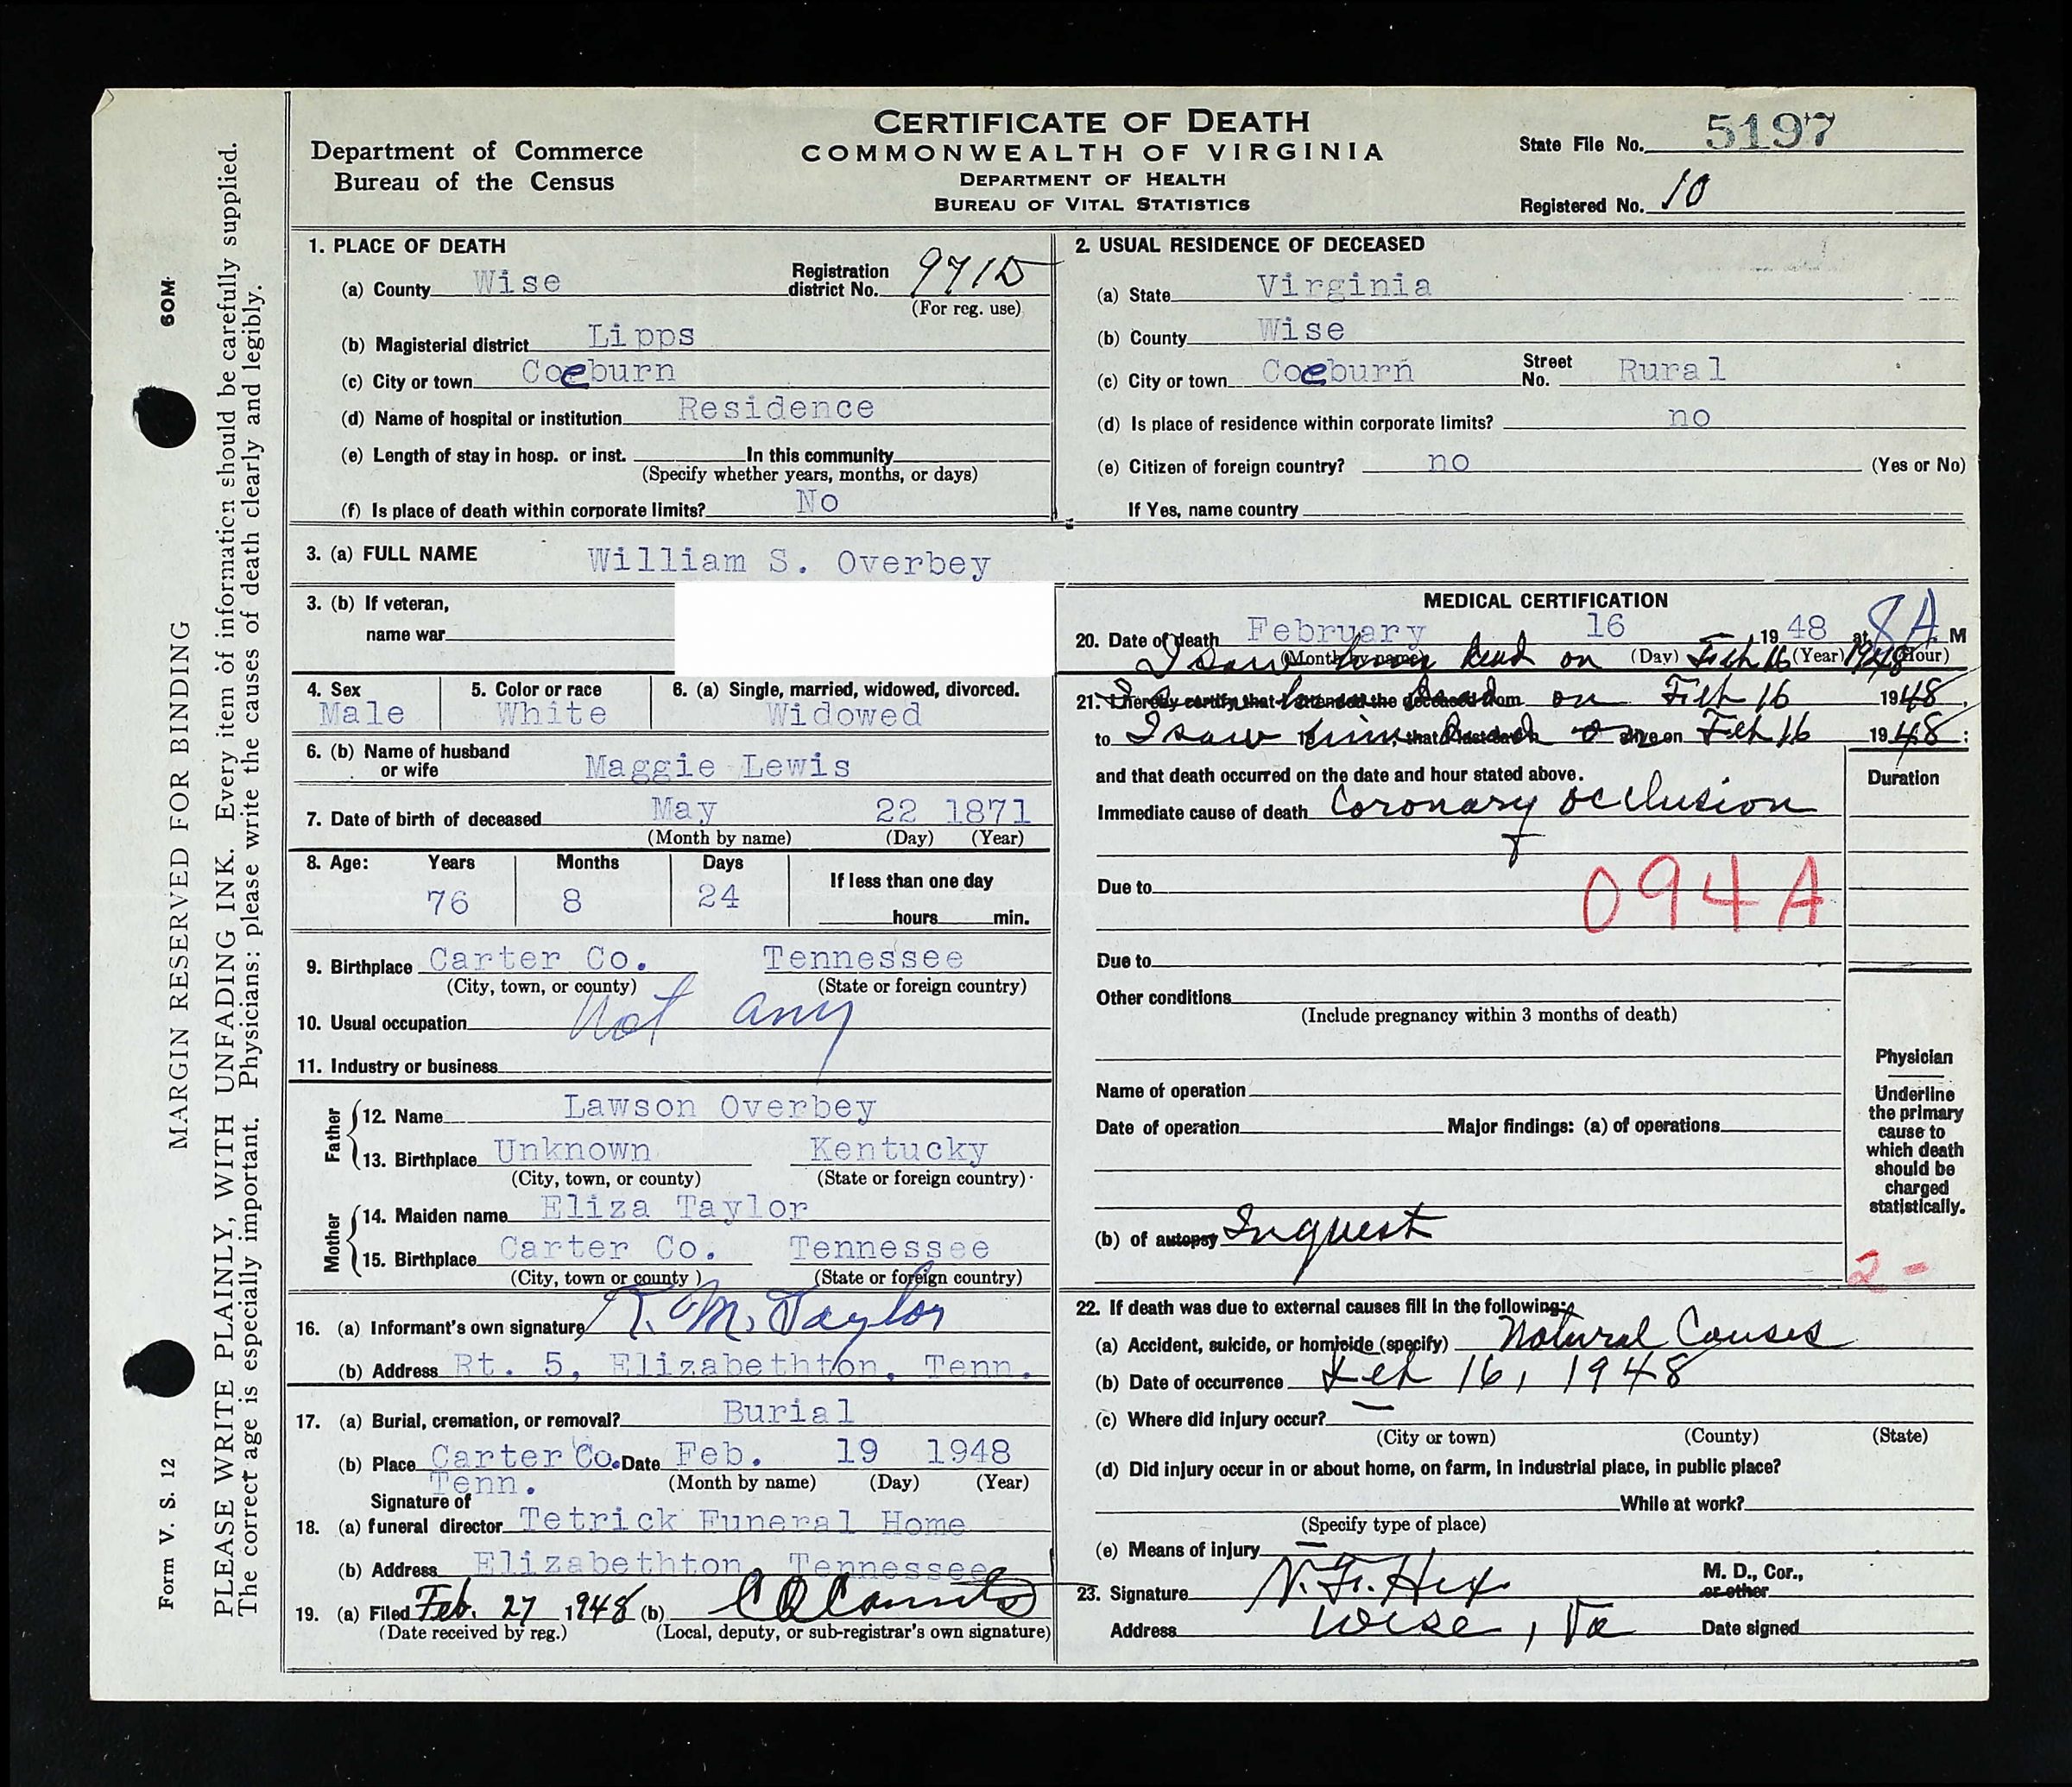 CERTIFICATE OF DEATH
COMMONWEALTH OF VIRGINIA
DEPARTMENT OF HEALTH
BUREAU OF VITAL STATISTICS
Department of Commerce
Bureau of the Census
State File No. 5197
Registered No. 10
MARGIN RESERVED FOR BINDING
60M
PLEASE WRITE PLAINLY, WITH UNFADING INK. Every item of information should be carefully supplied.
The correct age is especially important. Physicians: please write the causes of death clearly and legibly.
Form V. S. 12
1. PLACE OF DEATH
(a) County Wise Registration district No. 971D
(For reg. use)
(b) Magisterial district Lipps
(c) City or town Coeburn
(d) Name of hospital or institution Residence
(e) Length of stay in hosp. or inst. In this community
(Specify whether years, months, or days)
(f) Is place of death within corporate limits? No
2. USUAL RESIDENCE OF DECEASED
(a) State Virginia
(b) County Wise
(c) City or town Coeburn Street No. Rural
(d) Is place of residence within corporate limits? no
(e) Citizen of foreign country? no (Yes or No)
If Yes, name country
3. (a) FULL NAME William S. Overbey
3. (b) If veteran,
name war
4. Sex 5. Color or race 6. (a) Single, married, widowed, divorced.
Male White Widowed
6. (b) Name of husband
or wife Maggie Lewis
7. Date of birth of deceased May 22 1871
(Month by name) (Day) (Year)
8. Age: Years Months Days If less than one day
76 8 24 hours min.
9. Birthplace Carter Co. Tennessee
(City, town, or county) (State or foreign country)
10. Usual occupation Not any
11. Industry or business
Father
12. Name Lawson Overbey
13. Birthplace Unknown Kentucky
(City, town, or county) (State or foreign country)
Mother
14. Maiden name Eliza Taylor
15. Birthplace Carter Co. Tennessee
(City, town or county ) (State or foreign country)
16. (a) Informant's own signature R. M. Taylor
(b) Address Rt. 5, Elizabethton, Tenn.
17. (a) Burial, cremation, or removal? Burial
(b) Place Carter Co. Date Feb. 19 1948
Tenn. (Month by name) (Day) (Year)
Signature of
18. (a) funeral director Tetrick Funeral Home
(b) Address Elizabethton, Tennessee
19. (a) Filed Feb. 27 1948 (b)
(Date received by reg.) (Local, deputy, or sub-registrar's own signature)
MEDICAL CERTIFICATION
20. Date of death February 16 1948 at 8A. M
(Month by name) (Day) (Year) (Hour)
I saw him dead on Feb 16 1948
21. I hereby certify that I attended the deceased from on Feb 16 1948,
to I saw him dead on Feb 16 1948:
and that death occurred on the date and hour stated above. Duration
Immediate cause of death Coronary occlusion
Due to 094A
Due to
Other conditions
(Include pregnancy within 3 months of death)
Name of operation
Date of operation Major findings: (a) of operations
(b) of autopsy Inquest
Physician
Underline
the primary
cause to
which death
should be
charged
statistically.
2 -
22. If death was due to external causes fill in the following:
(a) Accident, suicide, or homicide (specify) Natural Causes
(b) Date of occurrence Feb 16, 1948
(c) Where did injury occur?
(City or town) (County) (State)
(d) Did injury occur in or about home, on farm, in industrial place, in public place?
While at work?
(Specify type of place)
(e) Means of injury
23. Signature M. D., Cor.,
or other
Address Wise, Va Date signed